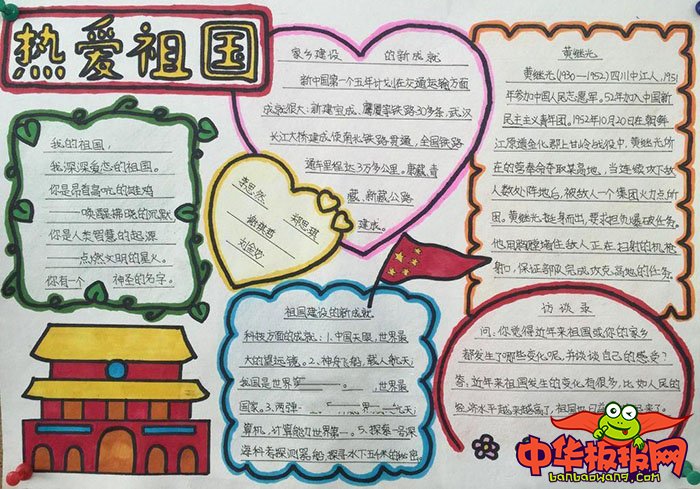 热爱祖国
我的祖国,
我深深爱恋的祖国。
你是昂首高吭的雄鸡
——唤醒拂晓的沉默
你是人类智慧的起源
——点燃文明的星火。
你有一个 神圣的名字。
家乡建设 的新成就
新中国第一个五年计划在交通运输方面
成就很大:新建宝成、鹰厦等铁路30多条,武汉
长江大桥建成使南北铁路贯通,全国铁路
通车里程达3万多公里。康藏、青
藏、新藏公路
建成。
李思然
谢棋君 郑思琪
祖国建设的新成就
科技方面的成就:1.中国天眼,世界最
大的望远镜。2、神舟飞船,载人航天;
我国是世界 ,世界最
国家。3、两弹一 航天
算机,计算能力世界第一。5、探索一号深
海科考探测器船,探寻水下五千米的秘密。
黄继光
黄继光(1930—1952)四川中江人,1951
年参加中国人民志愿军。52年加入中国新
民主主义青年团。1952年10月20日在朝鲜
江原道金化郡上甘岭战役中,黄继光所
在的营奉命夺取某高地,当连续攻下敌
人数处阵地后,被敌人一个集团火力点所
困。黄继光挺身而出,要求担负爆破任务。
他用胸膛堵住敌人正在扫射的机枪
射口,保证部队完成攻克高地的任务。
访谈录
问:你觉得近年来祖国或你的家乡
都发生了哪些变化呢,并谈谈自己的感受?
答:近年来祖国发生的变化有很多,比如人民的
经济水平越来越高了,祖国也 来了。
中华板报网
banbaowang.com